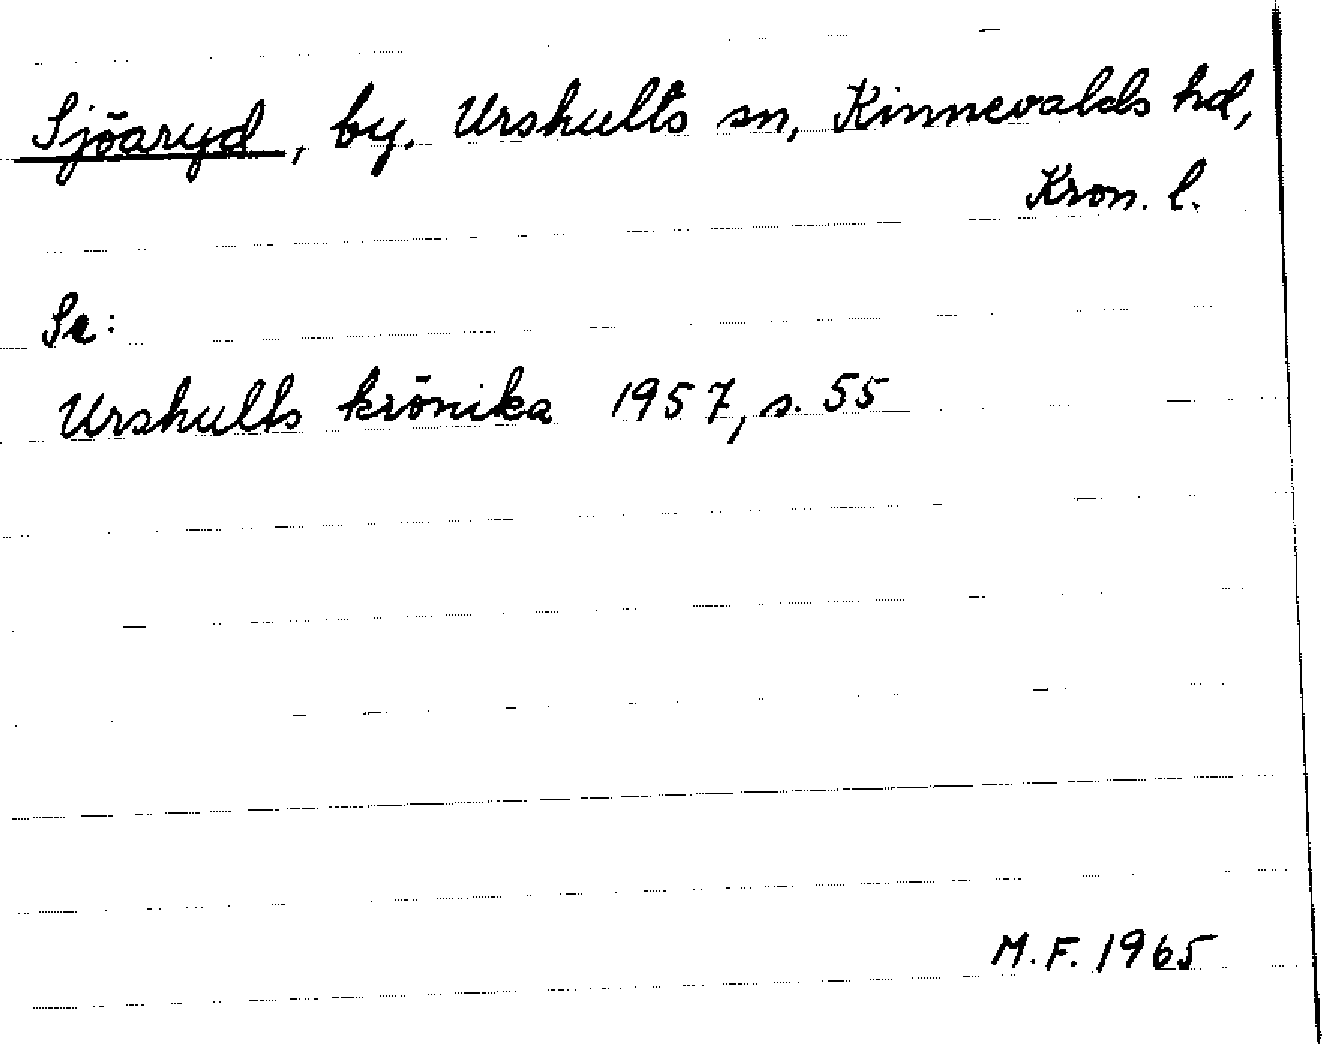 Sjöaryd, by. Urshults sn, Kinnevalds hd,
Kron. l.
Se:
Urshults krönika 1957, s. 55
M.F. 1965